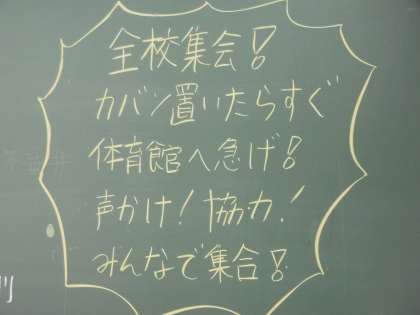 全校集会!
カバン置いたらすぐ
体育館へ急げ!
声かけ!協力!
みんなで集合!